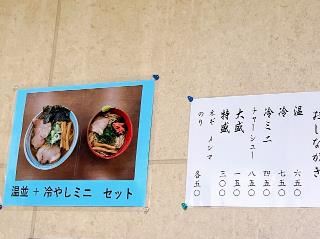 おしながき
温 六五〇
冷 七五〇
冷ミニ 四五〇
チャーシュー 八五〇
大盛 一五〇
特盛 三〇〇
ネギ メンマ
のり 各五〇
温並 + 冷やしミニ セット